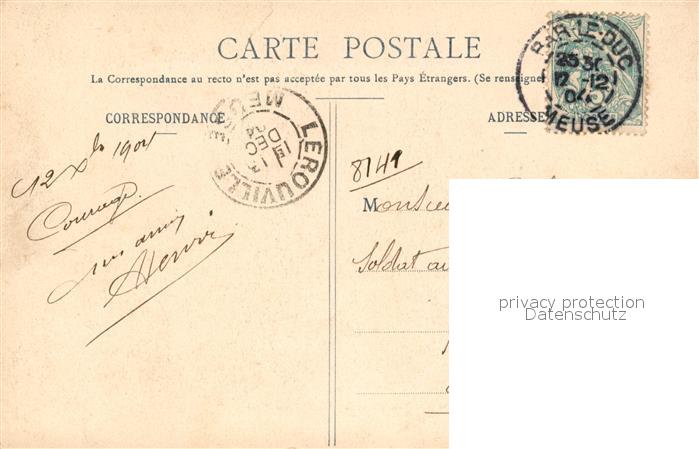 CARTE POSTALE
La Correspondance au recto n'est pas acceptée par tous les Pays Étrangers. (Se renseigne
CORRESPONDANCE
ADRESSE
BAR-LE-DUC
12 -12
04
MEUSE
LEROUVILLE
13
DEC
04
MEUSE
12 Xbre 1904
Courage
mon ami
Henri
8141
Monsieu
Soldat au
privacy protection
Datenschutz